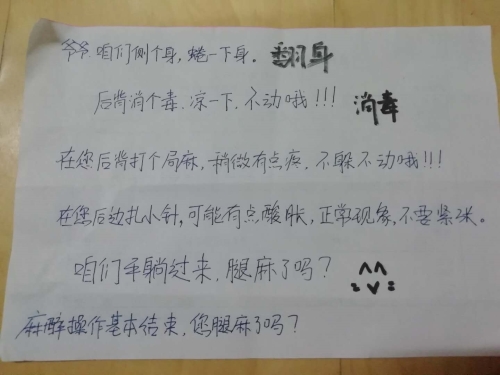 爷爷咱们侧个身,蜷一下身。 翻身
后背消个毒,凉一下,不动哦!!! 消毒
在您后背打个局麻,稍微有点疼,不躲不动哦!!!
在您后边扎小针,可能有点酸胀,正常现象,不要紧张。
咱们平躺过来,腿麻了吗?
麻醉操作基本结束,您腿麻了吗?